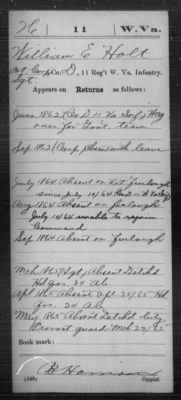 H | 11 | W. Va.
William E Holt
Pvt Corp Co. D, 11 Reg't W. Va. Infantry.
Sgt.
Appears on Returns as follows:
June 1862 (Co. D 11 Va Inf)
oner for Govt. team
Sep 1862 (Corp) Absent with leave
July 1864 Absent on Vet furlough
since July 10/64
Aug 1864 Absent on furlough
July 10/64 unable to rejoin
Command
Sep 1864 Absent on furlough
Mch 1865 (Sgt) Absent Detchd
Hd Qrs. 24 A.C.
Apl 1865 Absent Apl 21/65 Hd
Qrs. 24 A.C.
May 1865 Absent Detchd duty
guard Mch 24/65
Book mark:
(546) Copyist.